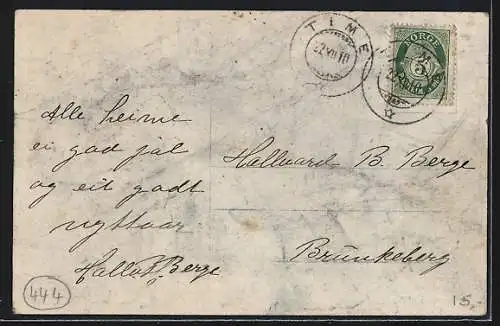 TIME
22 XII 10
NORGE
5
Alle heime
ei god jol
og eit godt
nyttaar
Hallv. Berge
Hallvard B. Berge
Brunkeberg
444
15.-